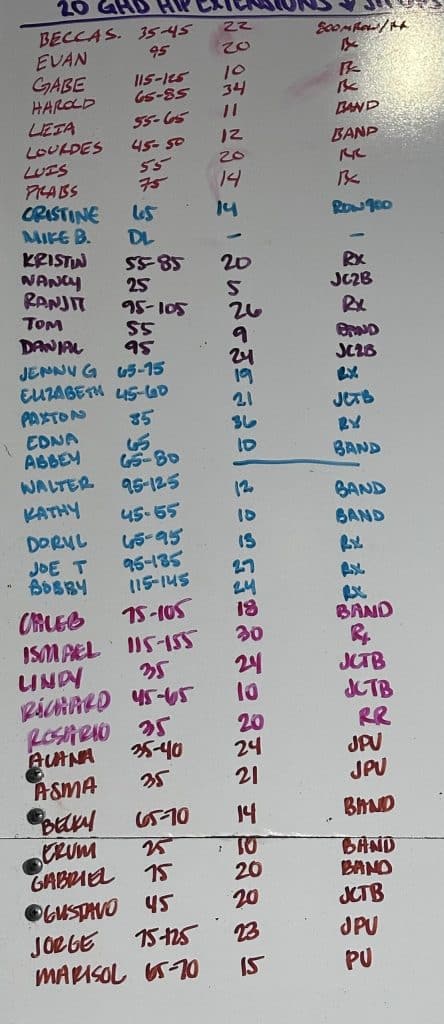 20 GHD HIP EXTENSIONS & SIT UPS
BECCA S. 35-45 22 800M ROW/RX
EVAN 95 20 Rx
GABE 115-125 10 Rx
HAROLD 65-85 34 Rx
LEIA 55-65 11 BAND
LOURDES 45-50 12 BAND
LUIS 55 20 RR
PRABS 75 14 Rx
CRISTINE 65 14 ROW 900
MIKE B. DL - -
KRISTIN 55-85 20 Rx
NANCY 25 5 JC2B
RANJIT 95-105 26 Rx
TOM 55 9 BAND
DANIAL 95 24 JC2B
JENNY G 65-75 19 RX
ELIZABETH 45-60 21 JCTB
PAXTON 85 36 RX
EDNA 65 10 BAND
ABBEY 65-80
WALTER 95-125 12 BAND
KATHY 45-55 10 BAND
DORYL 65-95 13 Rx
JOE T 95-135 27 Rx
BOBBY 115-145 24 Rx
CALEB 75-105 18 BAND
ISMAEL 115-155 30 Rx
LINDY 35 24 JCTB
RICHARD 45-65 10 JCTB
ROSARIO 35 20 RR
ALANA 35-40 24 JPU
ASMA 35 21 JPU
BECKY 65-70 14 BAND
ERUM 25 10 BAND
GABRIEL 75 20 BAND
GUSTAVO 45 20 JCTB
JORGE 75-125 23 JPU
MARISOL 65-70 15 PU